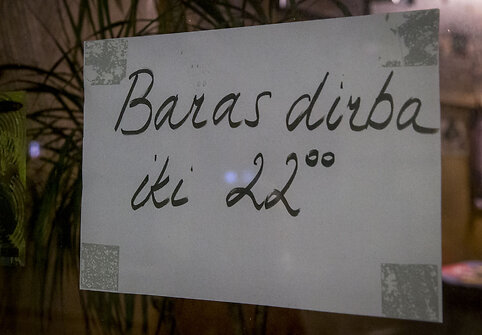 Baras dirba
iki 22⁰⁰